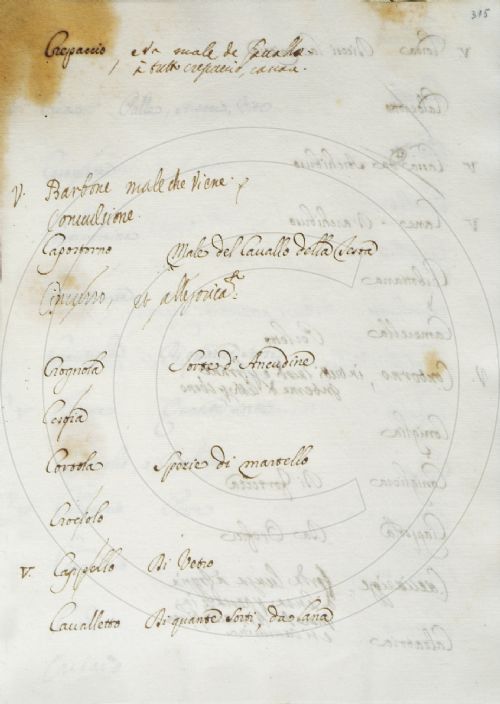 315
Crepaccio, era male de Cavallo
è tutto crepaccio, causa
V. Barbone male che viene
Convulsione.
Capostorno Male del Cavallo della Testa
et allegorica.te
Ciognola Sorte d'Ancudine
Cesoia
Corsola Sperie di martello
Crociolo
V. Cappello Di Vetro
Cavalletto Di quante Sorti, da Lana